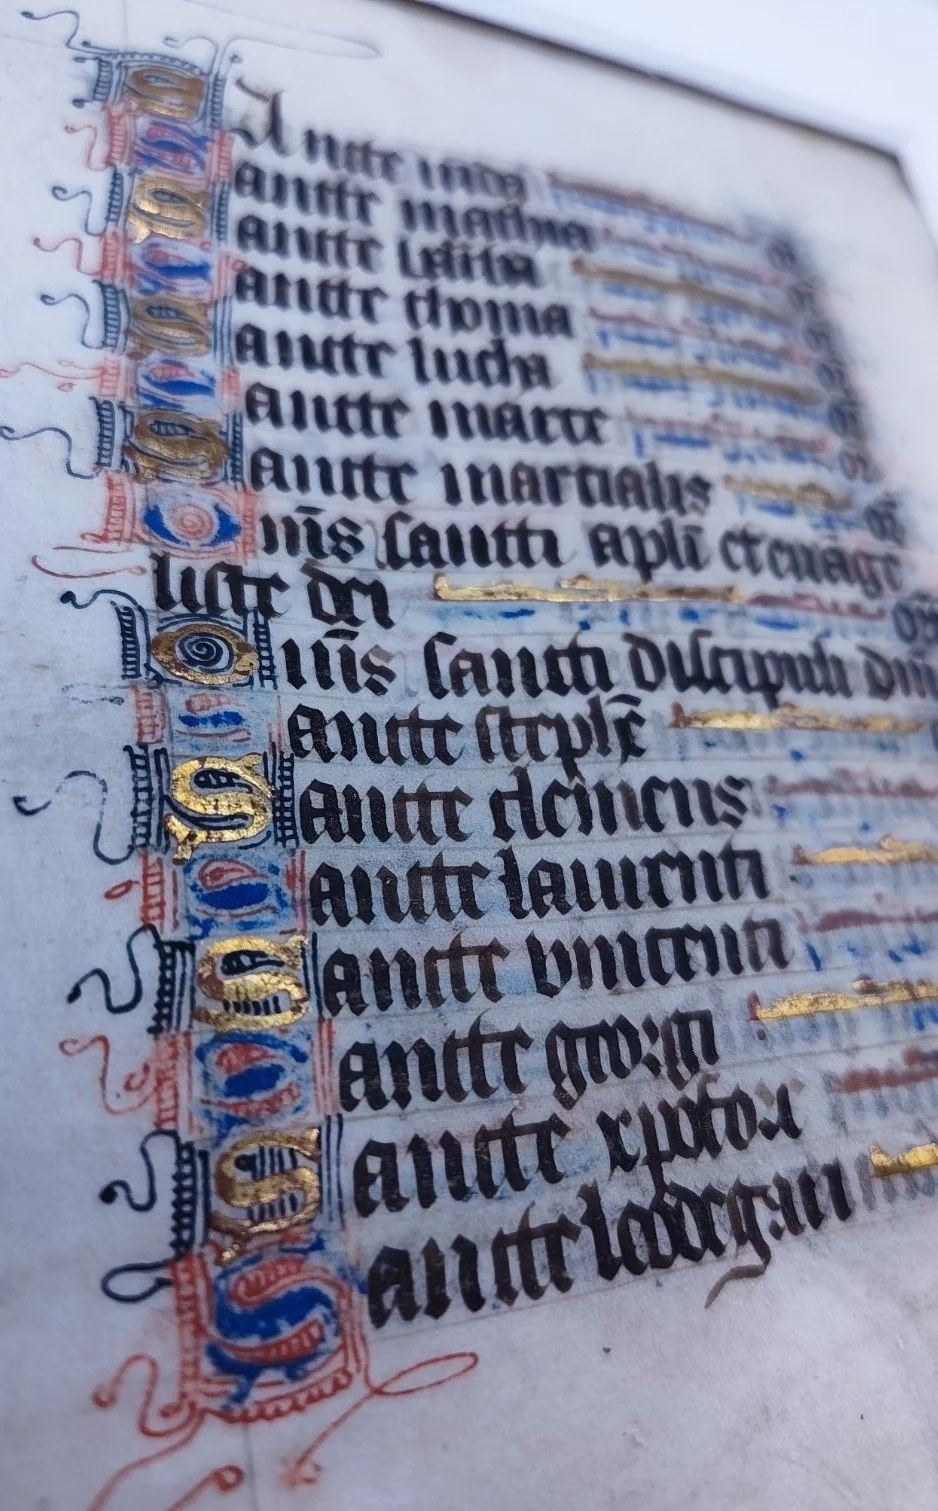 Sancte iude
Sancte mathia
Sancte
Sancte thoma
Sancte lucha
Sancte marce
Sancte martialis
Om̄s sancti apl̄i et euāge
liste dei or
Om̄s sancti discipuli dn̄i
Sancte steph̄e
Sancte clemens
Sancte laurenti
Sancte vincenti
Sancte georgi
Sancte xp̄ofore
Sancte leodegari